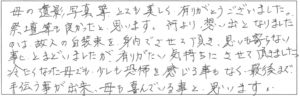 母の遺影写真等とても美しく有りがとうございました。
祭壇も良かったと思います。何より、思い出となりました
のは故人の白装束を身内でさせて頂き、思いも寄らない
事にとまどいましたが有りがたい気持ちにさせて頂きました。
冷たくなった母でも少しも恐怖を感じる事もなく最後まで
手伝う事が出来、母も喜んでいる事と思います。